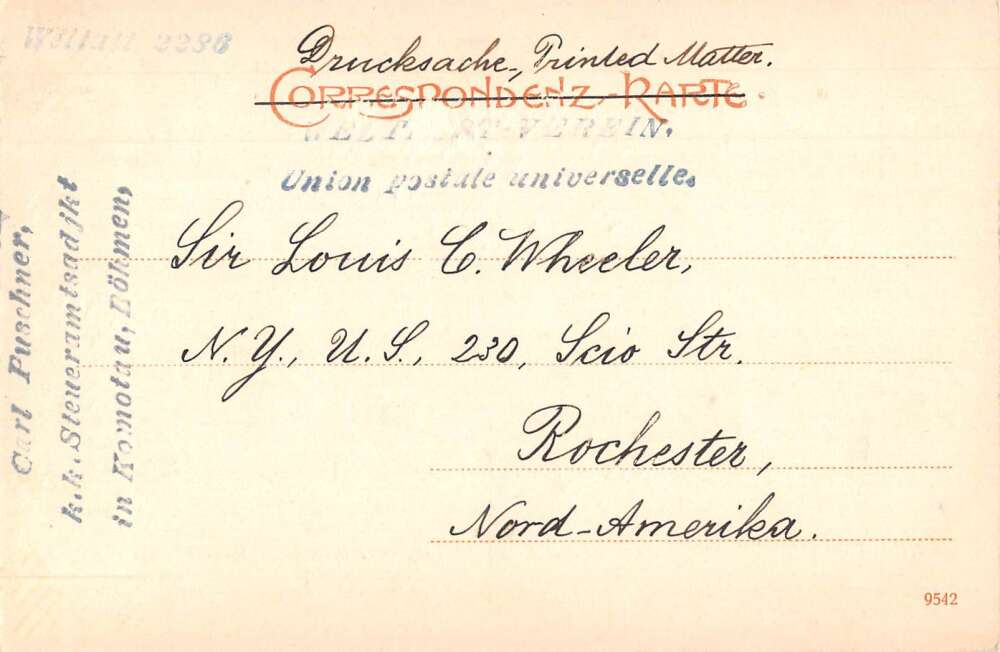 2286
Drucksache, Printed Matter.
CORRESPONDENZ-KARTE.
VEREIN.
Union postale universelle.
Carl Puschner,
k.k. Steueramtsadjkt
in Komotau, Böhmen,
Sir Louis C. Wheeler,
N. Y., U. S., 230, Scio Str.
Rochester,
Nord-Amerika.
9542